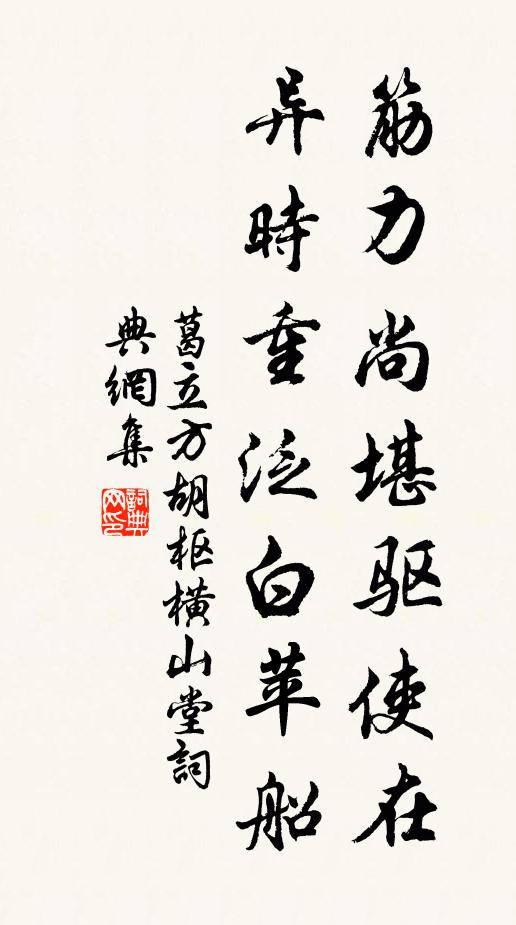 筋力尚堪驱使在
异時重泛白苹船
葛立方胡枢横山堂詞
典網集
詞典网印